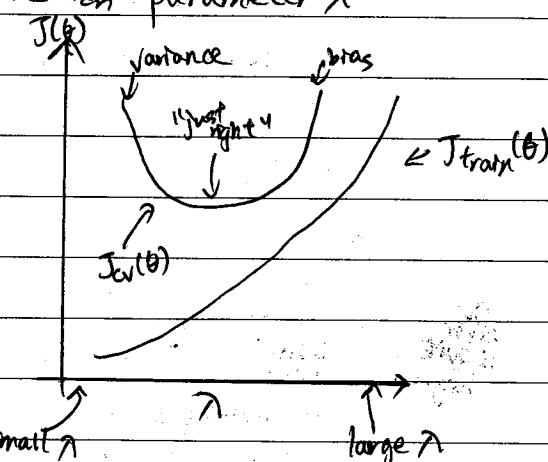 parameter λ
J(θ)
variance
bias
"just
right"
J_train(θ)
J_cv(θ)
λ
small λ
large λ